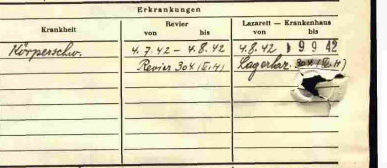 Erkrankungen
Krankheit Revier Lazarett — Krankenhaus
von bis von bis
Körperschw. 4.7.42 – 4.8.42 4.8.42 9 9 42
Revier 304 (VI.H) Lagerlaz.